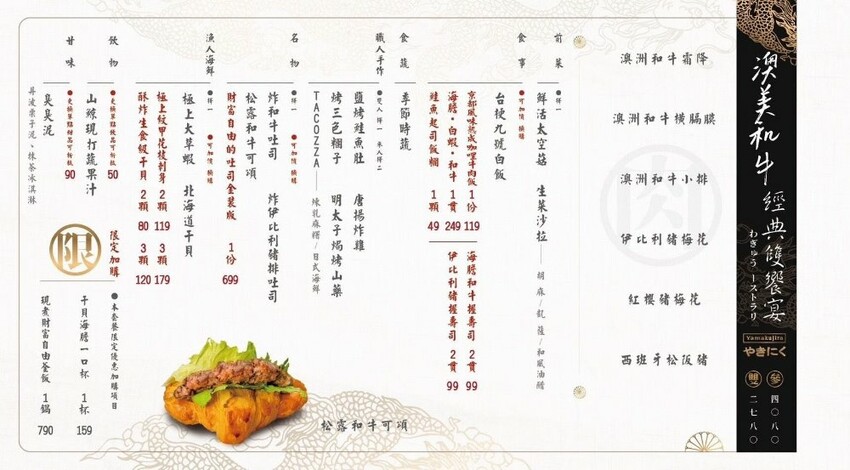 澳美和牛經典雙饗宴
わぎゅう ーストラリ
Yamakujira
やきにく
雙 二七八〇
參 四〇八〇
肉
澳洲和牛霜降
澳洲和牛橫膈膜
澳洲和牛小排
伊比利豬梅花
紅櫻豬梅花
西班牙松阪豬
前菜
●擇一
鮮活太空菇
生菜沙拉——胡麻/凱薩/和風油醋
食事
●可加價 換購
台梗九號白飯
京都風味熟成咖哩牛肉飯 1份 119
海膽・白蝦・和牛 1貫 249
鮭魚起司飯糰 1顆 49
海膽和牛握壽司 2貫 99
伊比利豬握壽司 2貫 99
食蔬
季節時蔬
職人手作
●雙人擇一 參人擇二
鹽烤鮭魚肚
唐揚炸雞
烤三色糰子
明太子焗烤山藥
TACOZZA——煉乳麻糬/日式海鮮
名物
●擇一
●可加價 換購
炸和牛吐司
炸伊比利豬排吐司
松露和牛可頌
財富自由的吐司金裝版 1份 699
漁人海鮮
●擇一
●可加價 換購
極上大草蝦
北海道干貝
極上紋甲花枝刺身 2顆 119 3顆 179
酥炸生食級干貝 2顆 80 3顆 120
飲物
●更換單點飲品可折抵 50
山線現打蔬果汁
甘味
●更換單點甜品可折抵 90
臭臭泥
丹波栗子泥、抹茶冰淇淋
限
限定加購
●本套餐限定優惠加購項目
干貝海膽一口杯 1杯 159
現煮財富自由釜飯 1鍋 790
松露和牛可頌